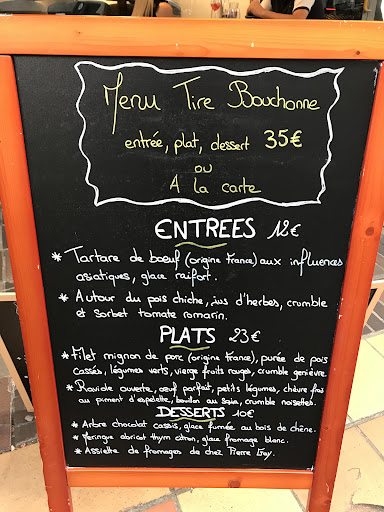 Menu Tire Bouchonne
entrée, plat, dessert 35€
ou
A la carte
ENTREES 12€
* Tartare de bœuf (origine France) aux influences
asiatiques, glace raifort.
* Autour du pois chiche, jus d'herbes, crumble
et sorbet tomate romarin.
PLATS 23€
* Filet mignon de porc (origine France), purée de pois
cassés, légumes verts, vierge fruits rouges, crumble genièvre.
* Raviole ouverte, œuf parfait, petits légumes, chèvre frais
au piment d'espelette, bouillon au soja, crumble noisettes.
DESSERTS 10€
* Arbre chocolat cassis, glace fumée au bois de chêne.
* Meringue abricot thym citron, glace fromage blanc.
* Assiette de fromages de chez Pierre